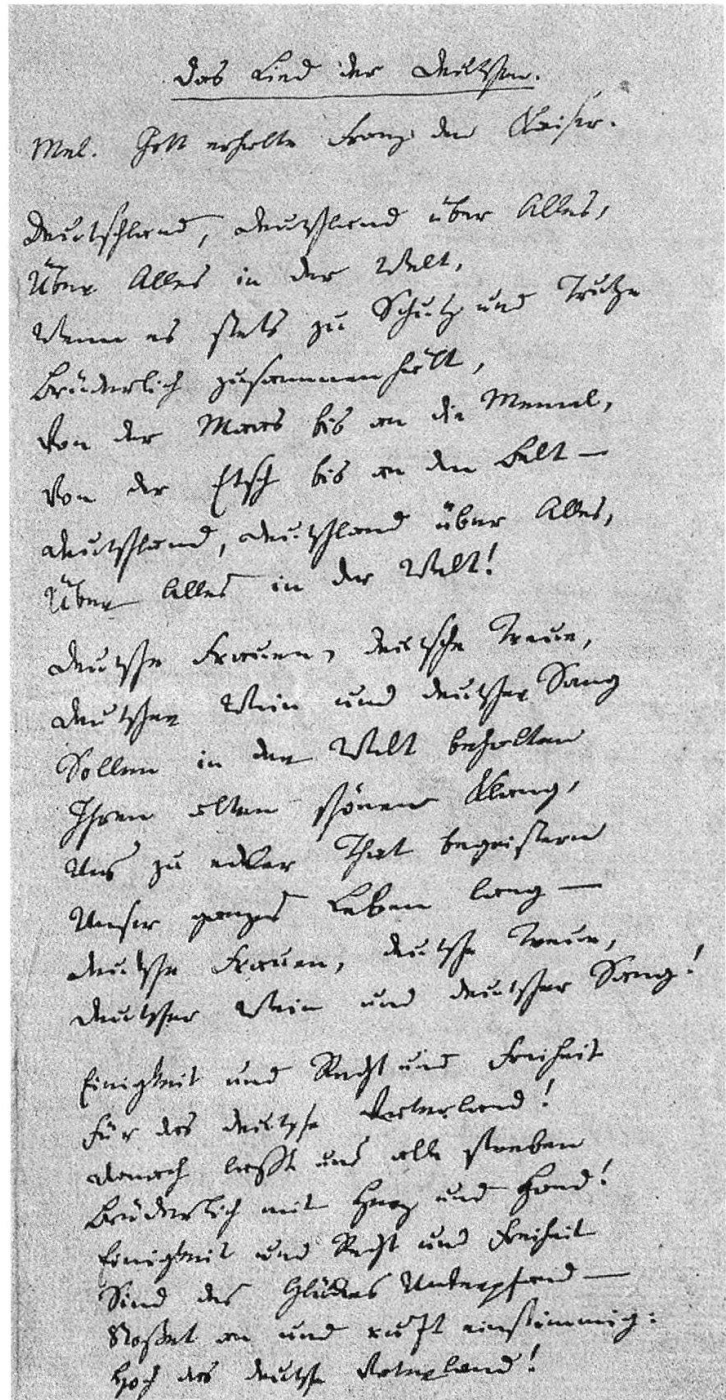 Das Lied der Deutschen.
Mel. Gott erhalte Franz den Kaiser.
Deutschland, Deutschland über Alles,
Über Alles in der Welt,
Wenn es stets zu Schutz und Trutze
Brüderlich zusammenhält,
Von der Maas bis an die Memel,
Von der Etsch bis an den Belt –
Deutschland, Deutschland über Alles,
Über Alles in der Welt!
Deutsche Frauen, deutsche Treue,
Deutscher Wein und deutscher Sang
Sollen in der Welt behalten
Ihren alten schönen Klang,
Uns zu edler That begeistern
Unser ganzes Leben lang –
Deutsche Frauen, deutsche Treue,
Deutscher Wein und deutscher Sang!
Einigkeit und Recht und Freiheit
Für das deutsche Vaterland!
Danach lasst uns alle streben
Brüderlich mit Herz und Hand!
Einigkeit und Recht und Freiheit
Sind des Glückes Unterpfand –
Stoßet an und ruft einstimmig:
Hoch das deutsche Vaterland!